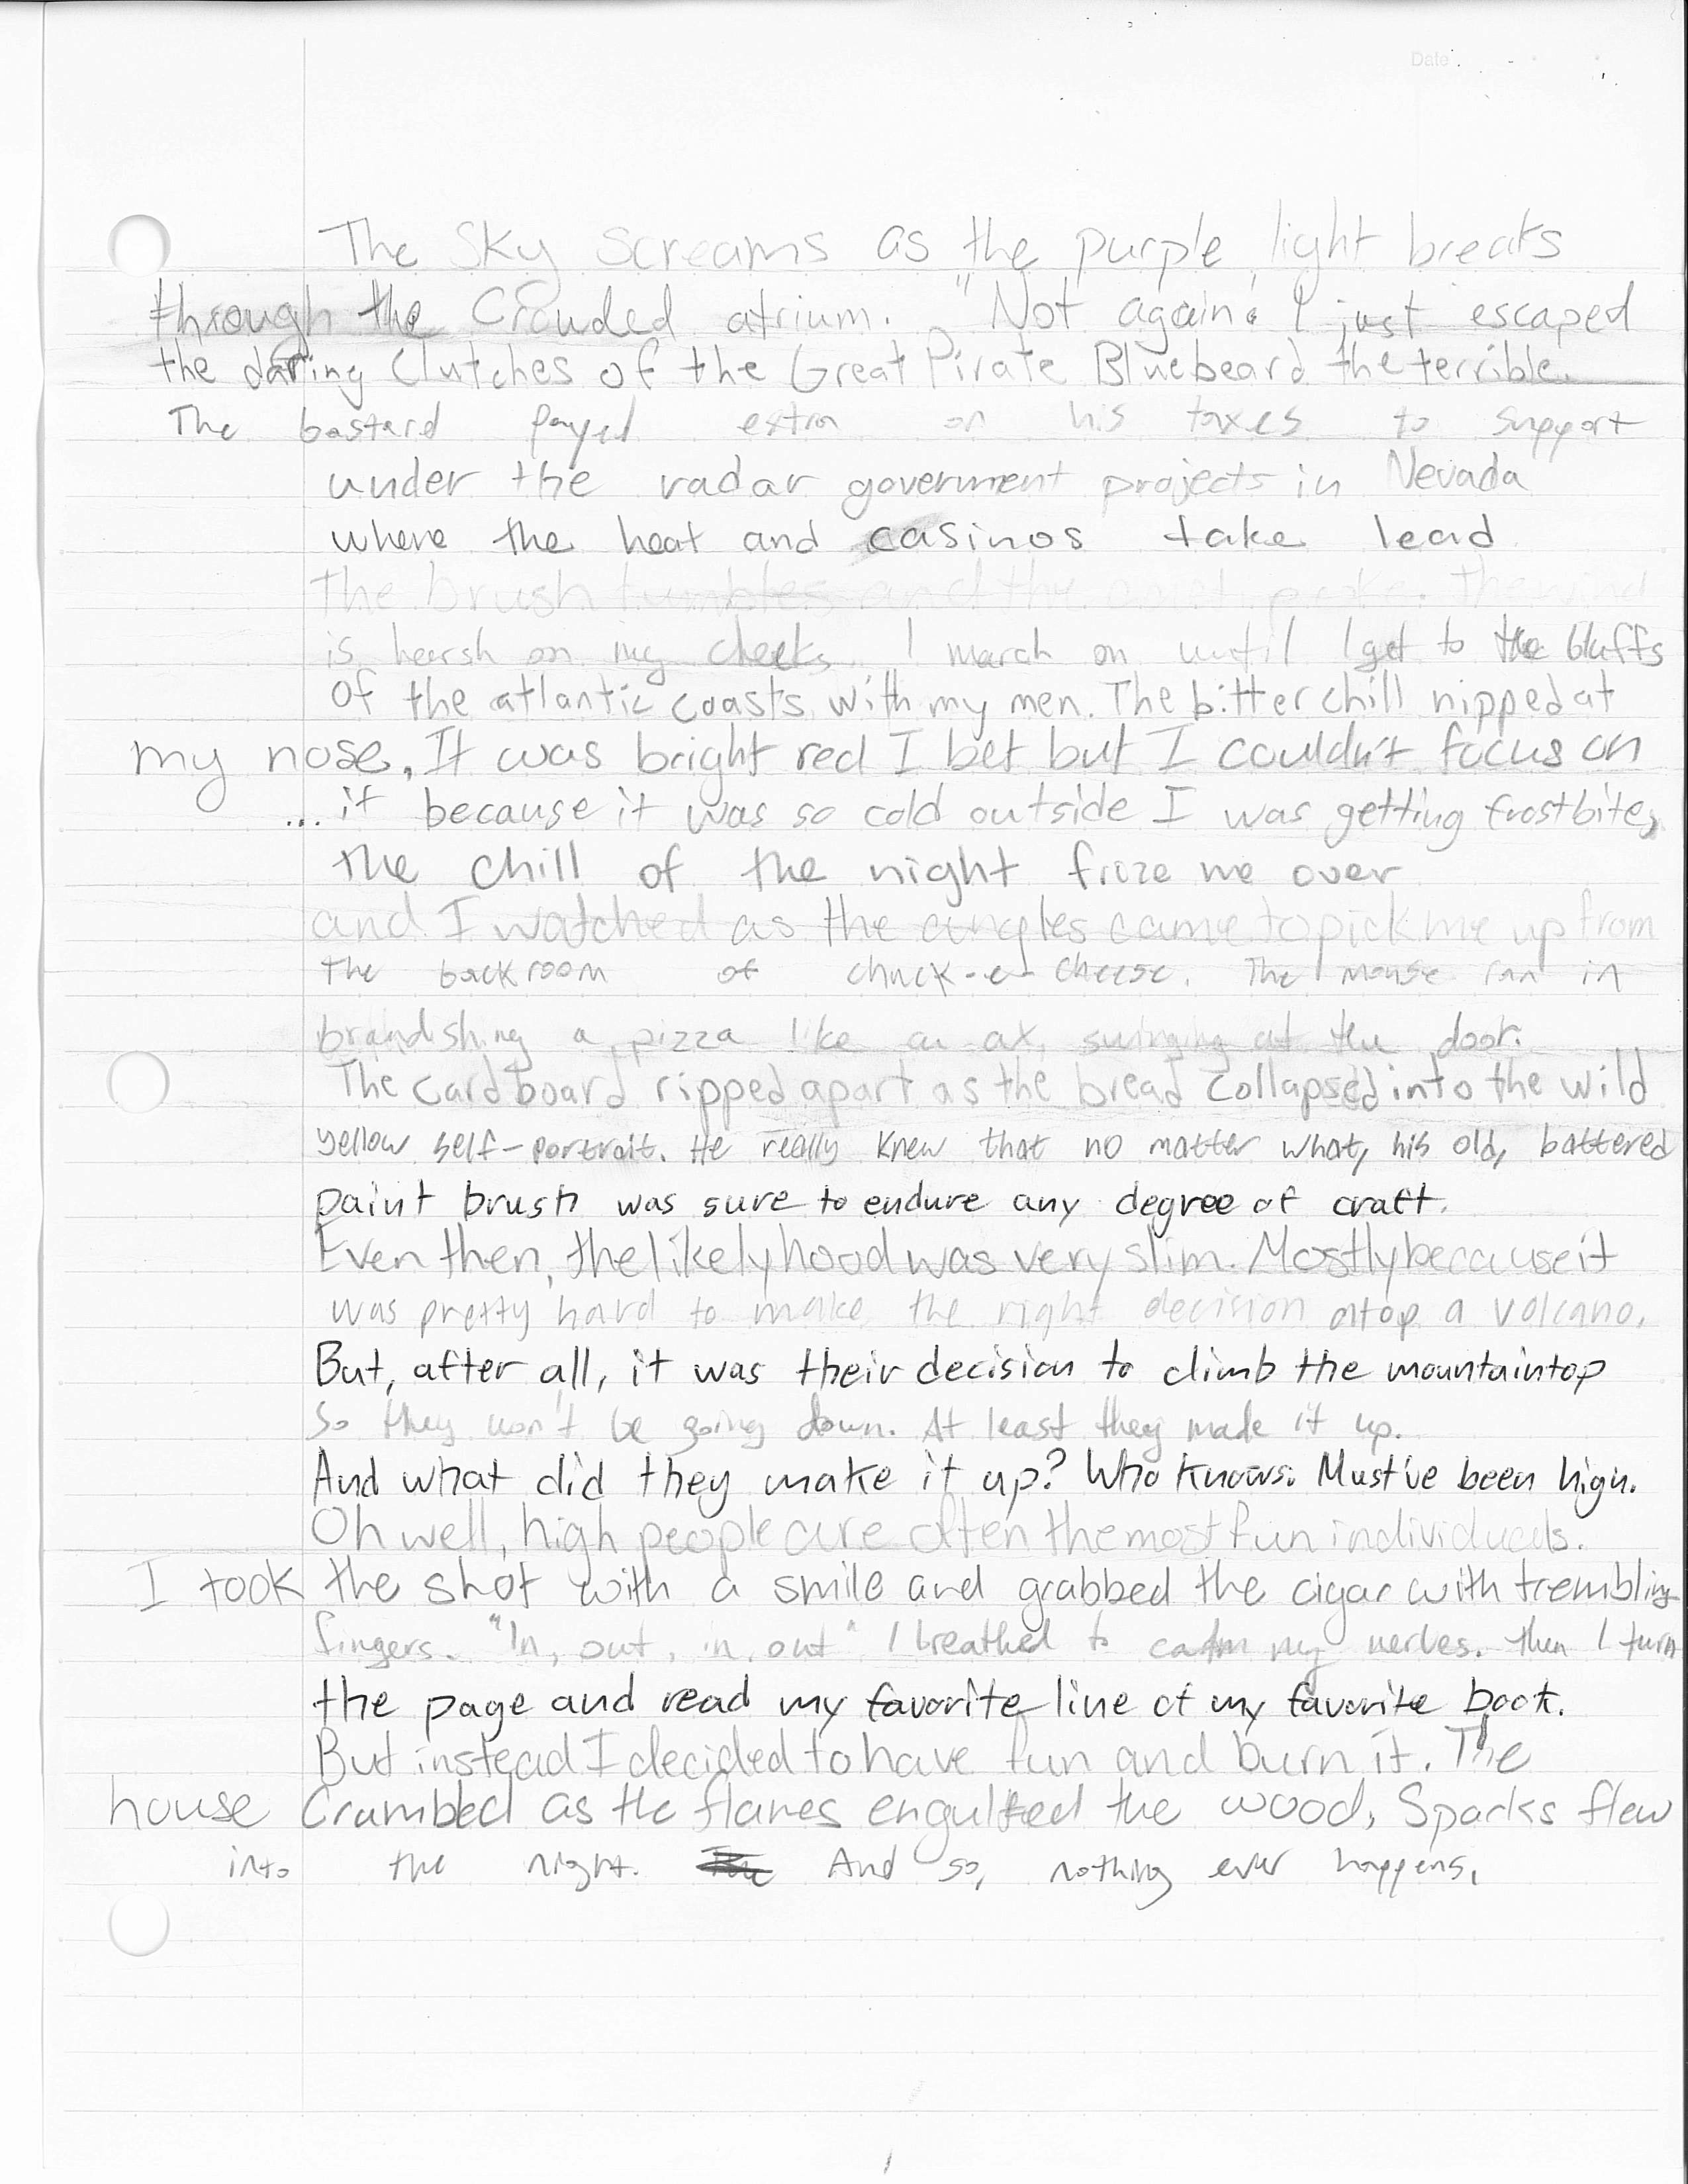 Date
The Sky screams as the purple light breaks
through the Crouded atrium. "Not again! I just escaped
the daring Clutches of the Great Pirate Bluebeard the terrible.
The basterd payed extra on his taxes to support
under the radar government projects in Nevada
where the heat and casinos take lead
The brush tumbles and the The wind
is harsh on my cheeks. I march on until I get to the bluffs
of the atlantic coasts with my men. The bitter chill nipped at
my nose. It was bright red I bet but I couldn't focus on
... it because it was so cold outside I was getting frostbite,
the chill of the night froze me over
and I watched as the angles came to pick me up from
the backroom of chuck-e-cheese. The mouse ran in
brandishing a pizza like an ax, swinging at the door.
The cardboard ripped apart as the bread collapsed into the wild
yellow self-portrait. He really knew that no matter what, his old, battered
paint brush was sure to endure any degree of craft.
Even then, the likelyhood was very slim. Mostly because it
was pretty hard to make the right decision atop a volcano.
But, after all, it was their decision to climb the mountaintop
so they won't be going down. At least they made it up.
And what did they make it up? Who knows. Must've been high.
Oh well, high people are often the most fun individuals.
I took the shot with a smile and grabbed the cigar with trembling
fingers. "In, out, in, out" I breathed to calm my nerves. Then I turn
the page and read my favorite line of my favorite book.
But instead I decided to have fun and burn it. The
house Crumbed as the flames engulfed the wood, Sparks flew
into the night. And so, nothing ever happens.